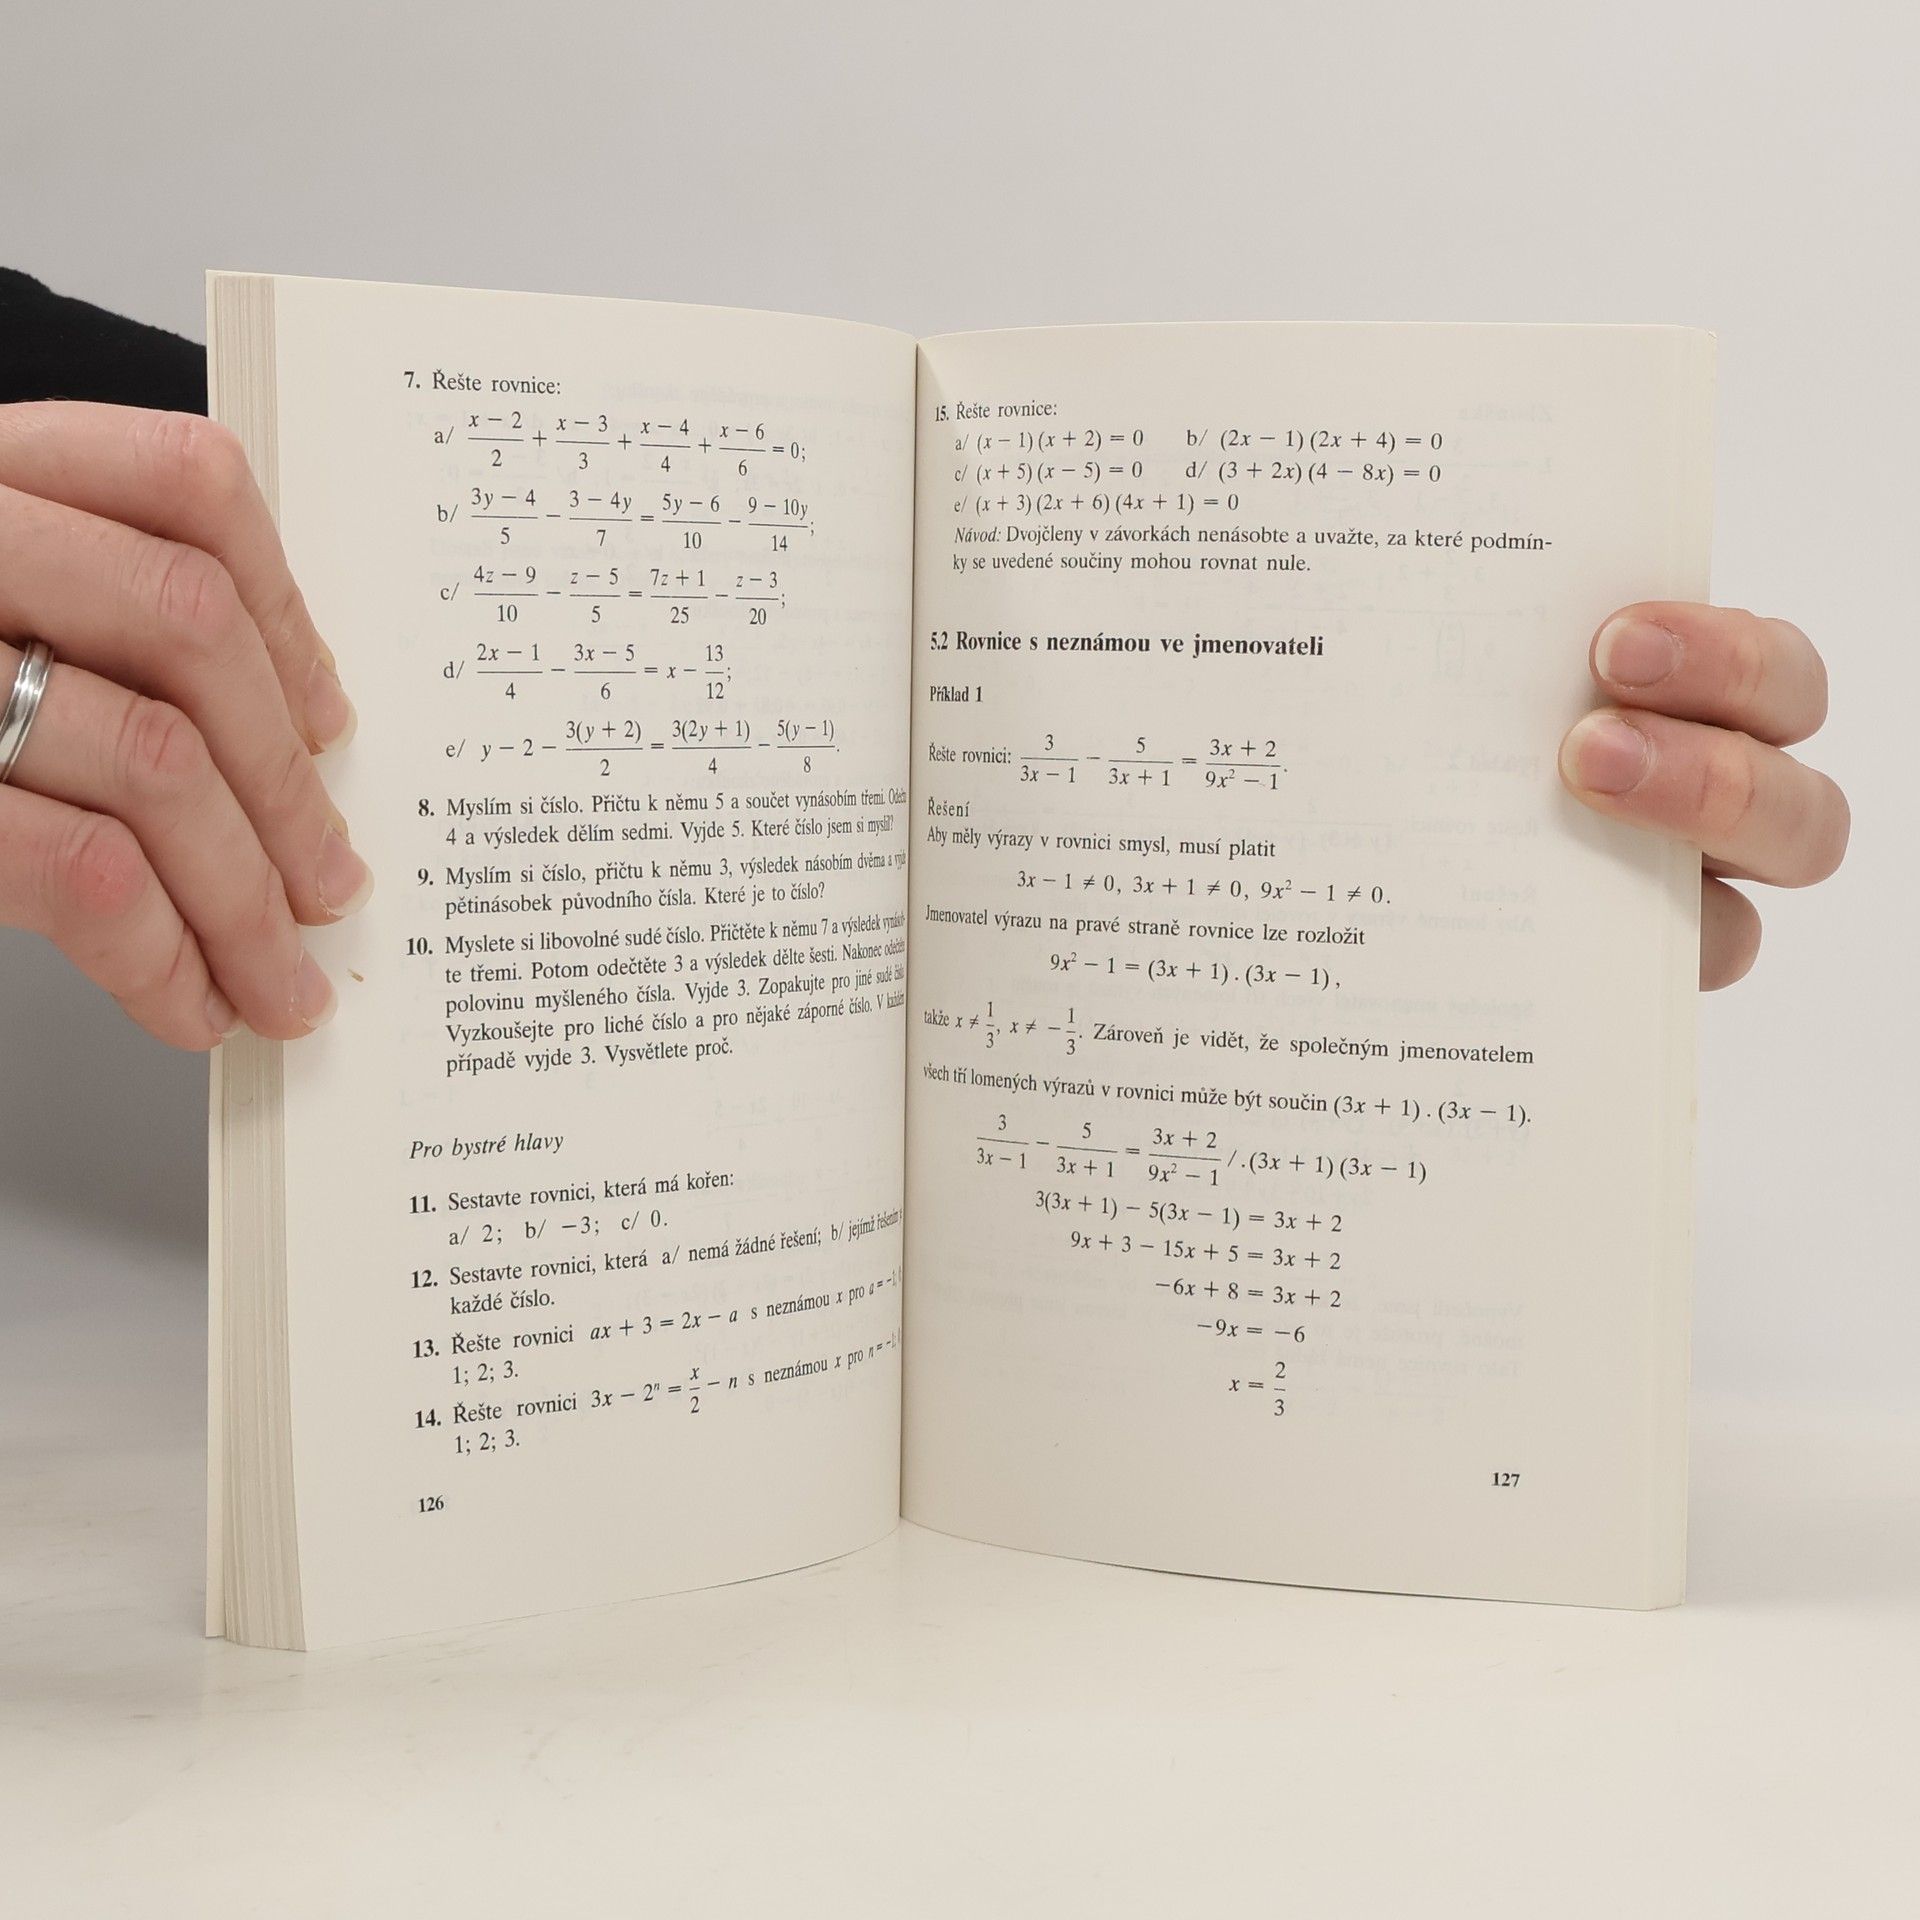 7. Řešte rovnice:
a/ (x − 2)/2 + (x − 3)/3 + (x − 4)/4 + (x − 6)/6 = 0;
b/ (3y − 4)/5 − (3 − 4y)/7 = (5y − 6)/10 − (9 − 10y)/14;
c/ (4z − 9)/10 − (z − 5)/5 = (7z + 1)/25 − (z − 3)/20;
d/ (2x − 1)/4 − (3x − 5)/6 = x − 13/12;
e/ y − 2 − 3(y + 2)/2 = 3(2y + 1)/4 − 5(y − 1)/8.
8. Myslím si číslo. Přičtu k němu 5 a součet vynásobím třemi. Odečtu
4 a výsledek dělím sedmi. Vyjde 5. Které číslo jsem si myslil?
9. Myslím si číslo, přičtu k němu 3, výsledek násobím dvěma a vyjde
pětinásobek původního čísla. Které je to číslo?
10. Myslete si libovolné sudé číslo. Přičtěte k němu 7 a výsledek vynásob-
te třemi. Potom odečtěte 3 a výsledek dělte šesti. Nakonec odečtěte
polovinu myšleného čísla. Vyjde 3. Zopakujte pro jiné sudé číslo.
Vyzkoušejte pro liché číslo a pro nějaké záporné číslo. V každém
případě vyjde 3. Vysvětlete proč.
Pro bystré hlavy
11. Sestavte rovnici, která má kořen:
a/ 2; b/ −3; c/ 0.
12. Sestavte rovnici, která a/ nemá žádné řešení; b/ jejímž řešením
každé číslo.
13. Řešte rovnici ax + 3 = 2x − a s neznámou x pro a = −1;
1; 2; 3.
14. Řešte rovnici 3x − 2ⁿ = x/2 − n s neznámou x pro n = −1;
1; 2; 3.
126
15. Řešte rovnice:
a/ (x − 1)(x + 2) = 0 b/ (2x − 1)(2x + 4) = 0
c/ (x + 5)(x − 5) = 0 d/ (3 + 2x)(4 − 8x) = 0
e/ (x + 3)(2x + 6)(4x + 1) = 0
Návod: Dvojčleny v závorkách nenásobte a uvažte, za které podmín-
ky se uvedené součiny mohou rovnat nule.
5.2 Rovnice s neznámou ve jmenovateli
Příklad 1
Řešte rovnici: 3/(3x − 1) − 5/(3x + 1) = (3x + 2)/(9x² − 1).
Řešení
Aby měly výrazy v rovnici smysl, musí platit
3x − 1 ≠ 0, 3x + 1 ≠ 0, 9x² − 1 ≠ 0.
Jmenovatel výrazu na pravé straně rovnice lze rozložit
9x² − 1 = (3x + 1) . (3x − 1),
takže x ≠ 1/3, x ≠ −1/3. Zároveň je vidět, že společným jmenovatelem
všech tří lomených výrazů v rovnici může být součin (3x + 1) . (3x − 1).
3/(3x − 1) − 5/(3x + 1) = (3x + 2)/(9x² − 1) /.(3x + 1)(3x − 1)
3(3x + 1) − 5(3x − 1) = 3x + 2
9x + 3 − 15x + 5 = 3x + 2
−6x + 8 = 3x + 2
−9x = −6
x = 2/3
127